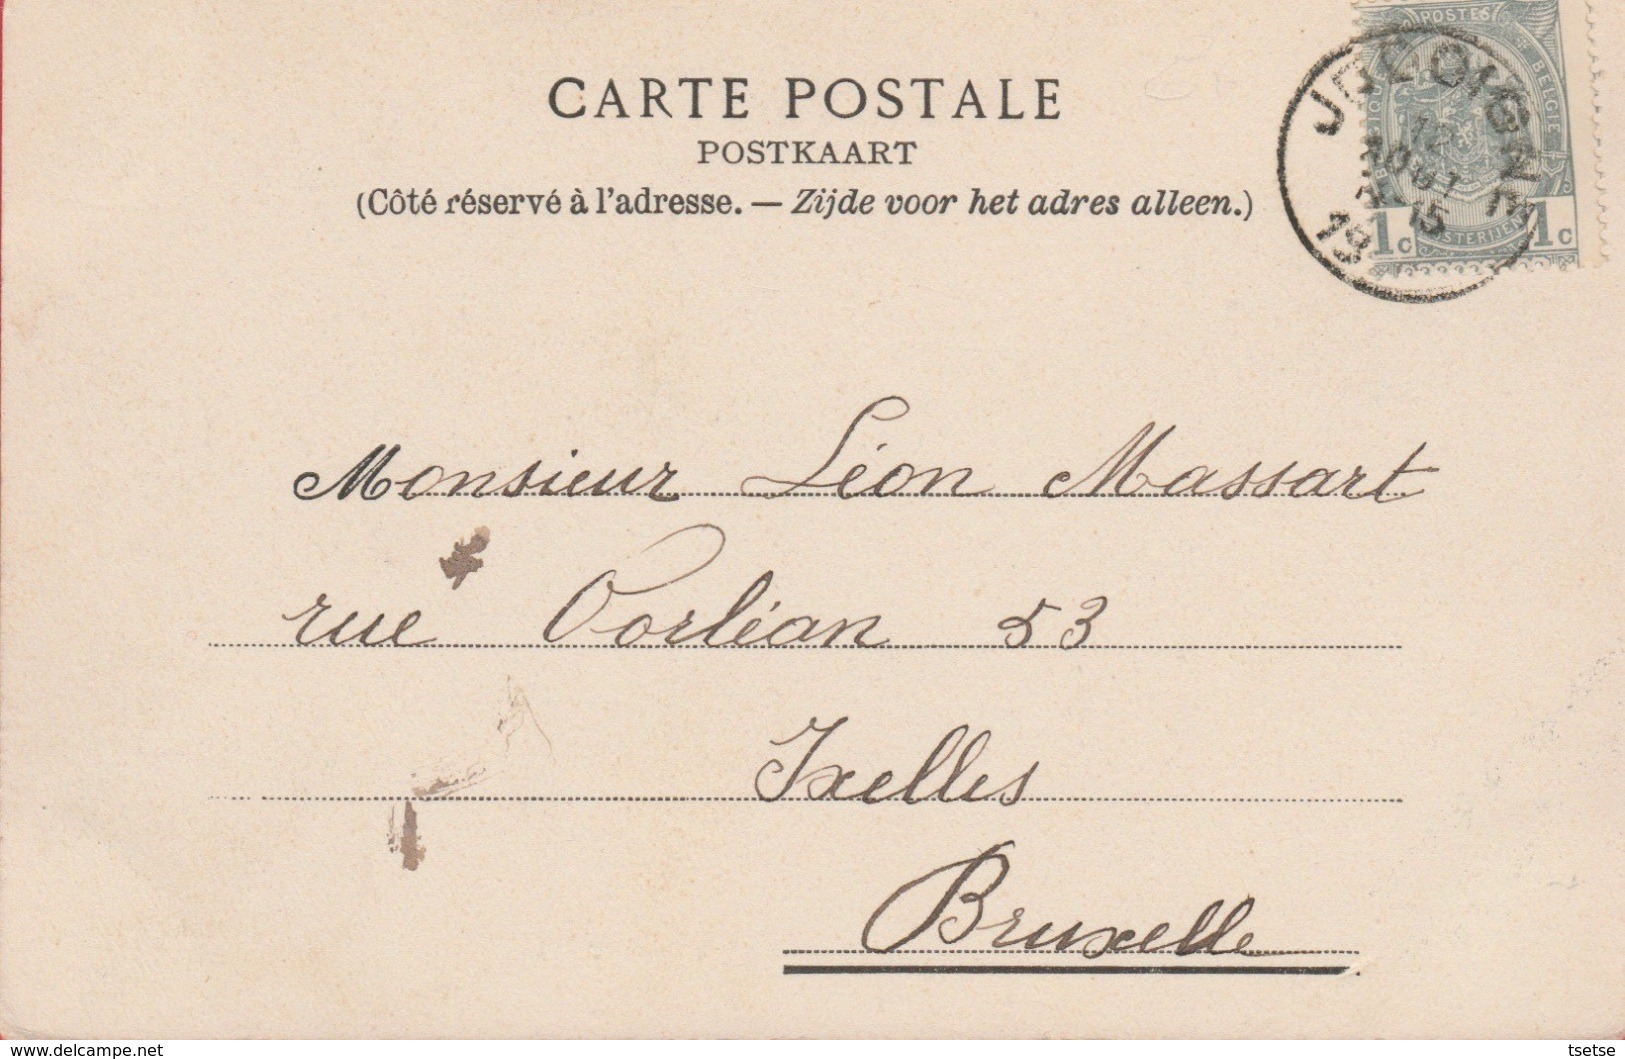 CARTE POSTALE
POSTKAART
(Côté réservé à l'adresse. — Zijde voor het adres alleen.)
POSTES
BELGIQUE
BELGIE
POSTERIJEN
1c 1c
JODOIGNE
12
AOUT
15
19
Monsieur Léon Massart
rue Vorléan 53
Ixelles
Bruxelle
www.delcampe.net
tsetse